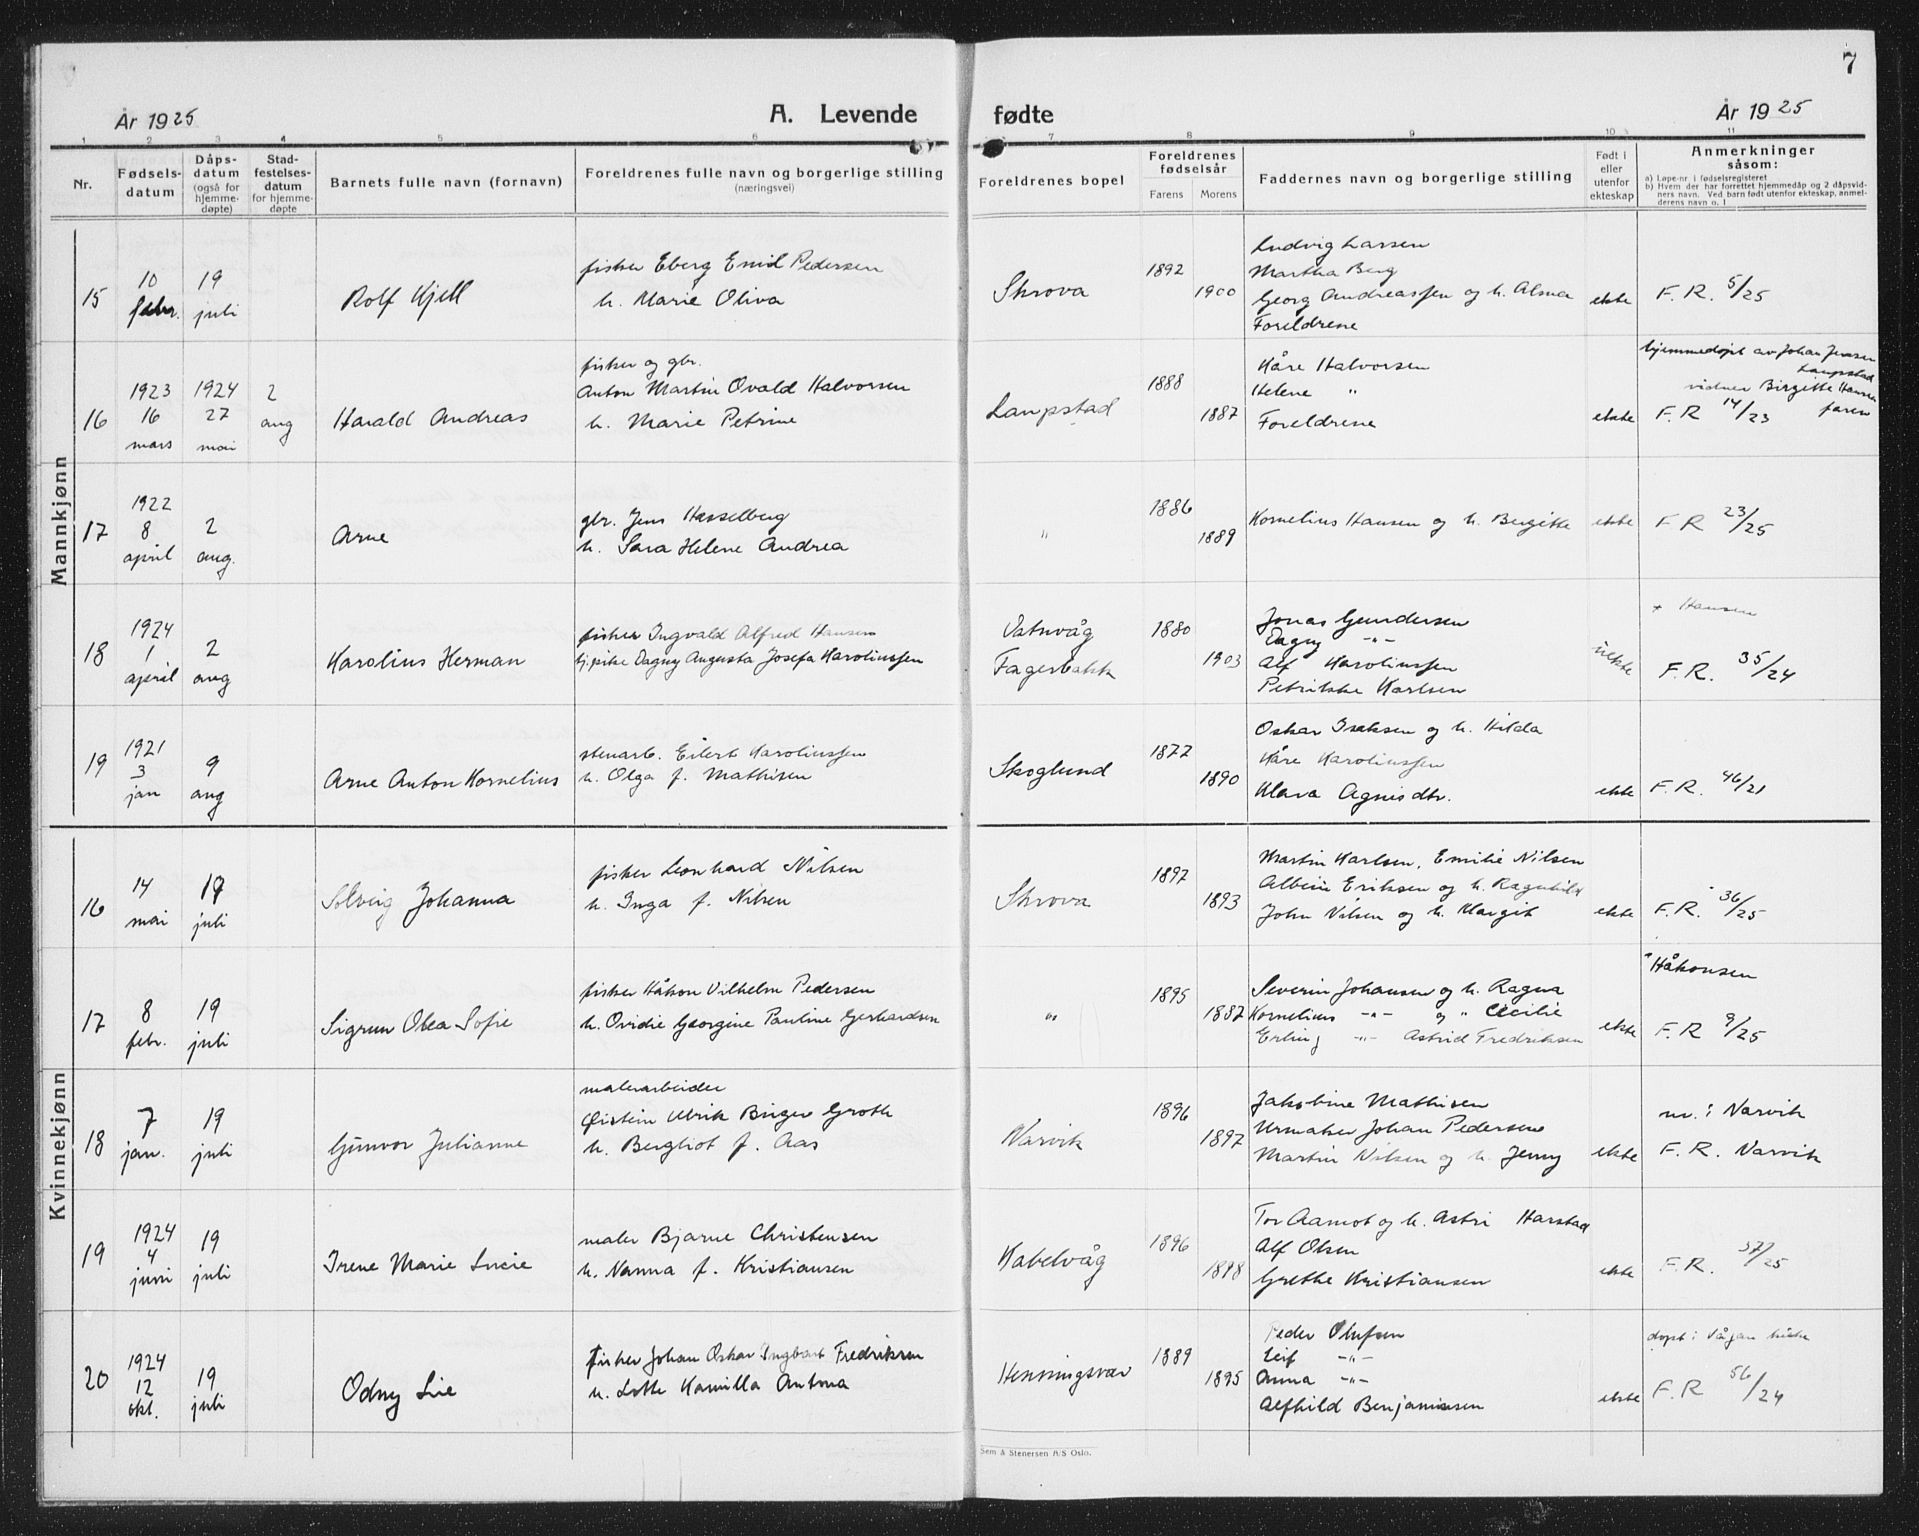 7
År 1925
A. Levende
fødte
År 1925
1 2 3 4 5 6 7 8 9 10 11
Nr.
Fødsels-
datum
Dåps-
datum
(også for
hjemme-
døpte)
Stad-
festelses-
datum
for hjemme-
døpte
Barnets fulle navn (fornavn)
Foreldrenes fulle navn og borgerlige stilling
(næringsvei)
Foreldrenes bopel
Foreldrenes
fødselsår
Farens Morens
Faddernes navn og borgerlige stilling
Født i
eller
utenfor
ekteskap
Anmerkninger
såsom:
a) Løpe-nr. i fødselsregisteret
b) Hvem der har forrettet hjemmedåp og 2 dåpsvid-
ners navn. Ved barn født utenfor ekteskap, anmel-
derens navn o. l
Mannkjønn
15
10
febr.
19
juli
Rolf Kjell
fisker Eberg Emid Pedersen
h. Marie Oliva
Skrova
1892
1900
Ludvig Larsen
Martha Berg
Georg Andreassen og h. Alma
Foreldrene
ekte
F. R. 5/25
16
1923
16
mars
1924
27
mai
2
aug
Harald Andreas
fisker og gbr.
Anton Martin Ovald Halvorsen
h. Marie Petrine
Laupstad
1888
1887
Kåre Halvorsen
Helene "
Foreldrene
ekte
hjemmedøpt av Johan Jensen
Laupstad
vidner Birgitte Hansen
faren
F. R 14/23
17
1922
8
april
2
aug.
Arne
gbr. Jens Hasselberg
h. Sara Helene Andrea
"
1886
1889
Kornelius Hansen og h. Bergitte
ekte
F R 23/25
18
1924
1
april
2
aug
Karolius Herman
fisker Ingvald Alfred Hansen
tj.pike Dagny Augusta Josefa Karoliussen
Vatnvåg
Fagerbakk
1880
1903
Jonas Gundersen
Dagny -"-
Alf Karoliussen
Petrikke Karlsen
uekte
+ Hansen
F. R. 35/24
19
1921
3
jan
9
aug
Arne Anton Kornelius
stenarb. Eilert Karoliussen
h. Olga f. Mathisen
Skoglund
1877
1890
Oskar Isaksen og h. Hilda
Kåre Karoliussen
Klara Agnisdtr.
ekte
F. R. 46/21
Kvinnekjønn
16
14
mai
19
juli
Solveig Johanna
fisker Leonhard Nilsen
h. Inga f. Nilsen
Skrova
1897
1893
Martin Karlsen, Emilie Nilsen
Albin Eriksen og h. Ragnhild
John Nilsen og h. Margit
ekte
F. R. 36/25
17
8
febr.
19
juli
Sigrun Olea Sofie
fisker Håkon Vilhelm Pedersen
h. Ovidie Georgine Pauline Gerhardsen
"
1895
1887
Severin Johansen og h. Ragna
Kornelius -"- og " Cecilie
Erling -"- Astrid Fredriksen
ekte
* Håkonsen
F. R 9/25
18
7
jan.
19
juli
Gunvor Julianne
malerarbeider
Øistein Ulrik Birger Groth
h. Bergliot f. Aas
Narvik
1896
1897
Jakobine Mathisen
Urmaker Johan Pedersen
Martin Nilsen og h. Jenny
ekte
nr. i Narvik
F. R. Narvik
19
1924
4
juni
19
juli
Irene Marie Lucie
maler Bjarne Christensen
h. Nanna f. Kristiansen
Kabelvåg
1896
1898
Tor Aamot og h. Astri Harstad
Alf Olsen
Grethe Kristiansen
ekte
F. R. 37/25
20
1924
12
okt.
19
juli
Odny Lie
fisker Johan Oskar Ingbart Fredriksen
h. Lotte Kamilla Antona
Henningsvær
1889
1895
Peder Olufsen
Leif -"-
Anna -"-
Alfhild Benjaminsen
ekte
døpt i Vågan kirke
F. R 56/24
Sem & Stenersen A/S Oslo.